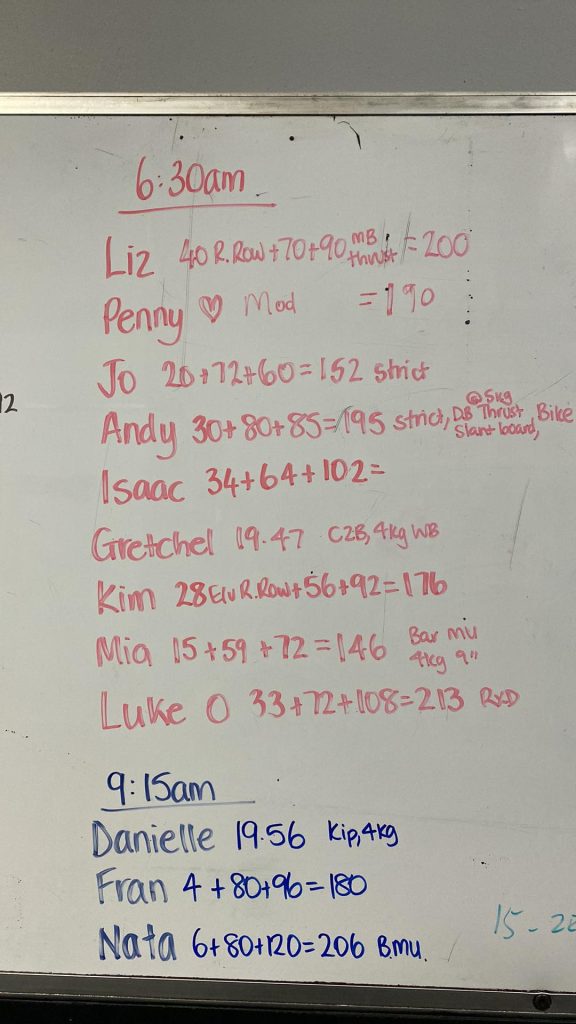 6:30am
Liz 40 R.Row+70+90 MB thrust =200
Penny ♡ Mod =190
Jo 20+72+60=152 strict
12
Andy 30+80+85=195 strict, DB Thrust @5kg, Slant board, Bike
Isaac 34+64+102=
Gretchel 19.47 C2B, 4kg WB
Kim 28 Elv R.Row+56+92=176
Mia 15+59+72=146 Bar MU 4kg 9"
Luke O 33+72+108=213 RXD
9:15am
Danielle 19.56 Kip, 4kg
Fran 4+80+96=180
15-20
Nata 6+80+120=206 B.mu.